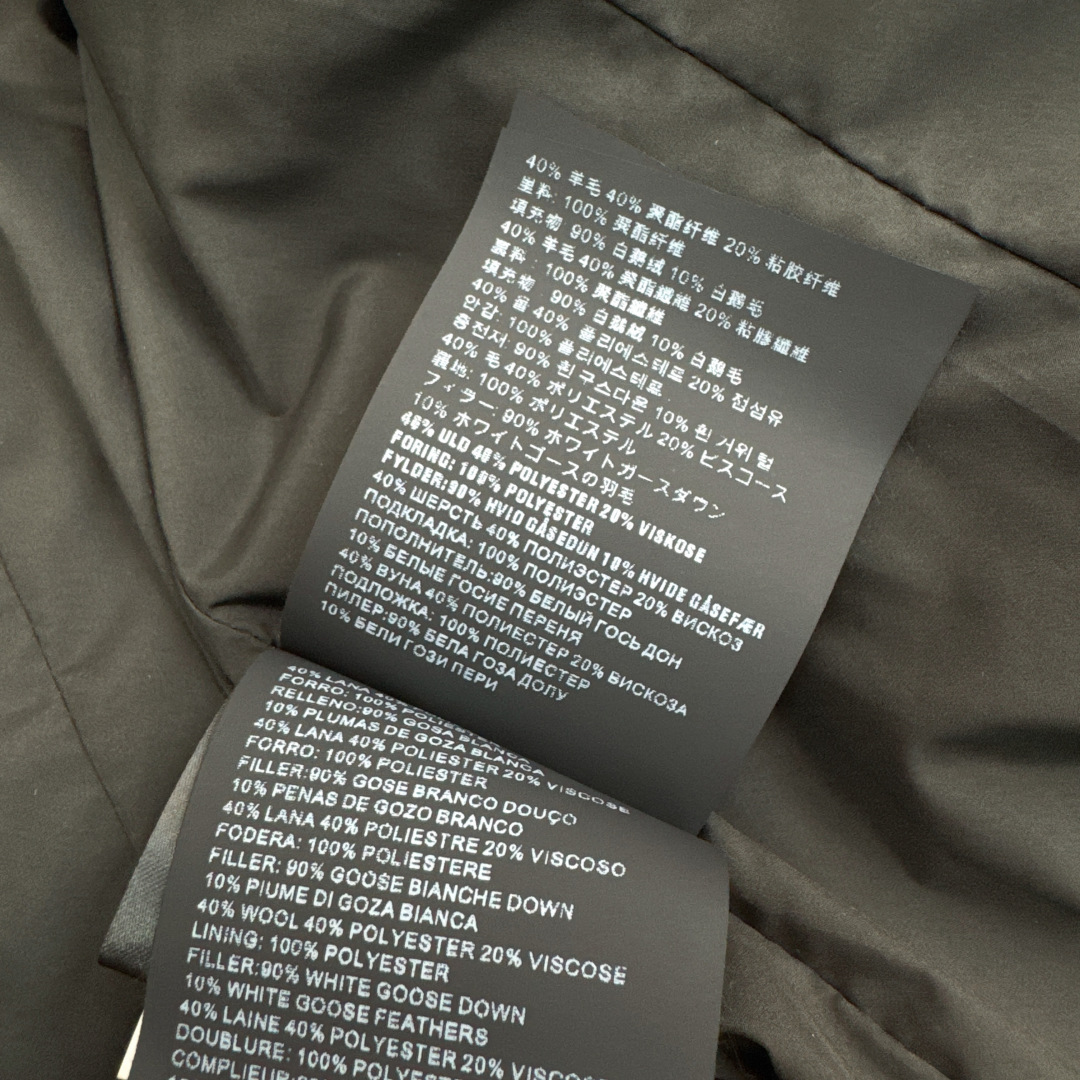 40% 羊毛 40% 聚酯纤维 20% 粘胶纤维
里料: 100% 聚酯纤维
填充物 90% 白鹅绒 10% 白鹅毛
40% 羊毛 40% 聚酯纖維 20% 粘膠纖維
裏料: 100% 聚酯纖維
填充物 90% 白鵝絨 10% 白鵝毛
40% 울 40% 폴리에스테르 20% 점섬유
안감: 100% 폴리에스테르
충전저: 90% 흰 구스다운 10% 흰 서위 털
40% 毛 40% ポリエステル 20% ビスコース
裏地: 100% ポリエステル
フィラー: 90% ホワイトガースダウン
10% ホワイトゴースの羽毛
40% ULD 40% POLYESTER 20% VISKOSE
FORING: 100% POLYESTER
FYLDER:90% HVID GÅSEDUN 10% HVIDE GÅSEFÆR
40% ШЕРСТЬ 40% ПОЛИЭСТЕР 20% ВИСКОЗ
ПОДКЛАДКА: 100% ПОЛИЭСТЕР
ПОПОЛНИТЕЛЬ:90% БЕЛЫЙ ГОСЬ ДОН
10% БЕЛЫЕ ГОСИЕ ПЕРЕНЯ
40% ВУНА 40% ПОЛИЕСТЕР 20% ВИСКОЗА
ПОДЛОЖКА: 100% ПОЛИЕСТЕР
ПИЛЕР:90% БЕЛА ГОЗА ДОЛУ
10% БЕЛИ ГОЗИ ПЕРИ
40% LANA 40%
FORRO: 100% POLIEST
RELLENO:90% GOSA BLANCA
10% PLUMAS DE GOZA BLANCA
40% LANA 40% POLIESTER 20% VISCOSE
FORRO: 100% POLIESTER
FILLER:90% GOSE BRANCO DOUÇO
10% PENAS DE GOZO BRANCO
40% LANA 40% POLIESTRE 20% VISCOSO
FODERA: 100% POLIESTERE
FILLER: 90% GOOSE BIANCHE DOWN
10% PIUME DI GOZA BIANCA
40% WOOL 40% POLYESTER 20% VISCOSE
LINING: 100% POLYESTER
FILLER:90% WHITE GOOSE DOWN
10% WHITE GOOSE FEATHERS
40% LAINE 40% POLYESTER 20% VISCOSE
DOUBLURE: 100% POLYESTER
COMPLIEUR: